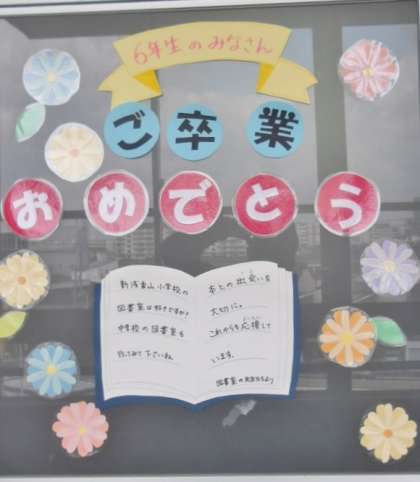 6年生のみなさん
ご卒業
おめでとう
新浅東山小学校の
図書室は好きですか?
中学校の図書室も
行ってみて下さいね
本との出会いを
大切に。
これからも応援して
います。
図書室の先生たちより